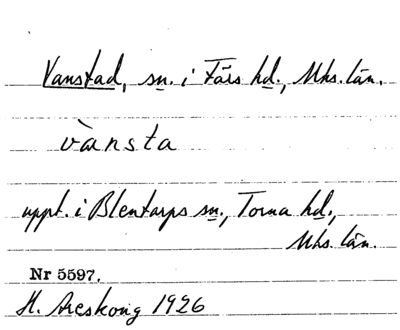 Vanstad, sn. i Färs hd., Mhs. län.
vànsta
uppt. i Blentarps sn., Torna hd.,
Mhs. län.
Nr 5597.
H. Areskoug 1926